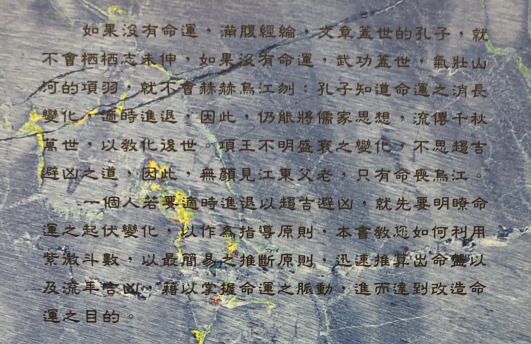 如果沒有命運，滿腹經綸，文章蓋世的孔子，就
不會栖栖志未伸，如果沒有命運，武功蓋世，氣壯山
河的項羽，就不會赫赫烏江刎；孔子知道命運之消長
變化，適時進退，因此，仍能將儒家思想，流傳千秋
萬世，以教化後世。項王不明盛衰之變化，不思趨吉
避凶之道，因此，無顏見江東父老，只有命喪烏江。
一個人若要適時進退以趨吉避凶，就先要明瞭命
運之起伏變化，以作為指導原則，本書教您如何利用
紫微斗數，以最簡易之推斷原則，迅速推算出命盤以
及流年吉凶，藉以掌握命運之脈動，進而達到改造命
運之目的。